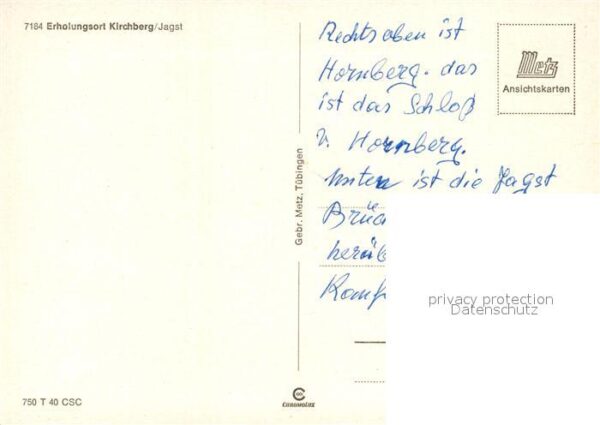 7184 Erholungsort Kirchberg/Jagst
Rechts oben ist
Hornberg. das
ist das Schloß
v. Hornberg.
Unten ist die Jagst
Brüc
herüb
Metz
Ansichtskarten
Gebr. Metz, Tübingen
privacy protection
Datenschutz
750 T 40 CSC
CHROMOLUX